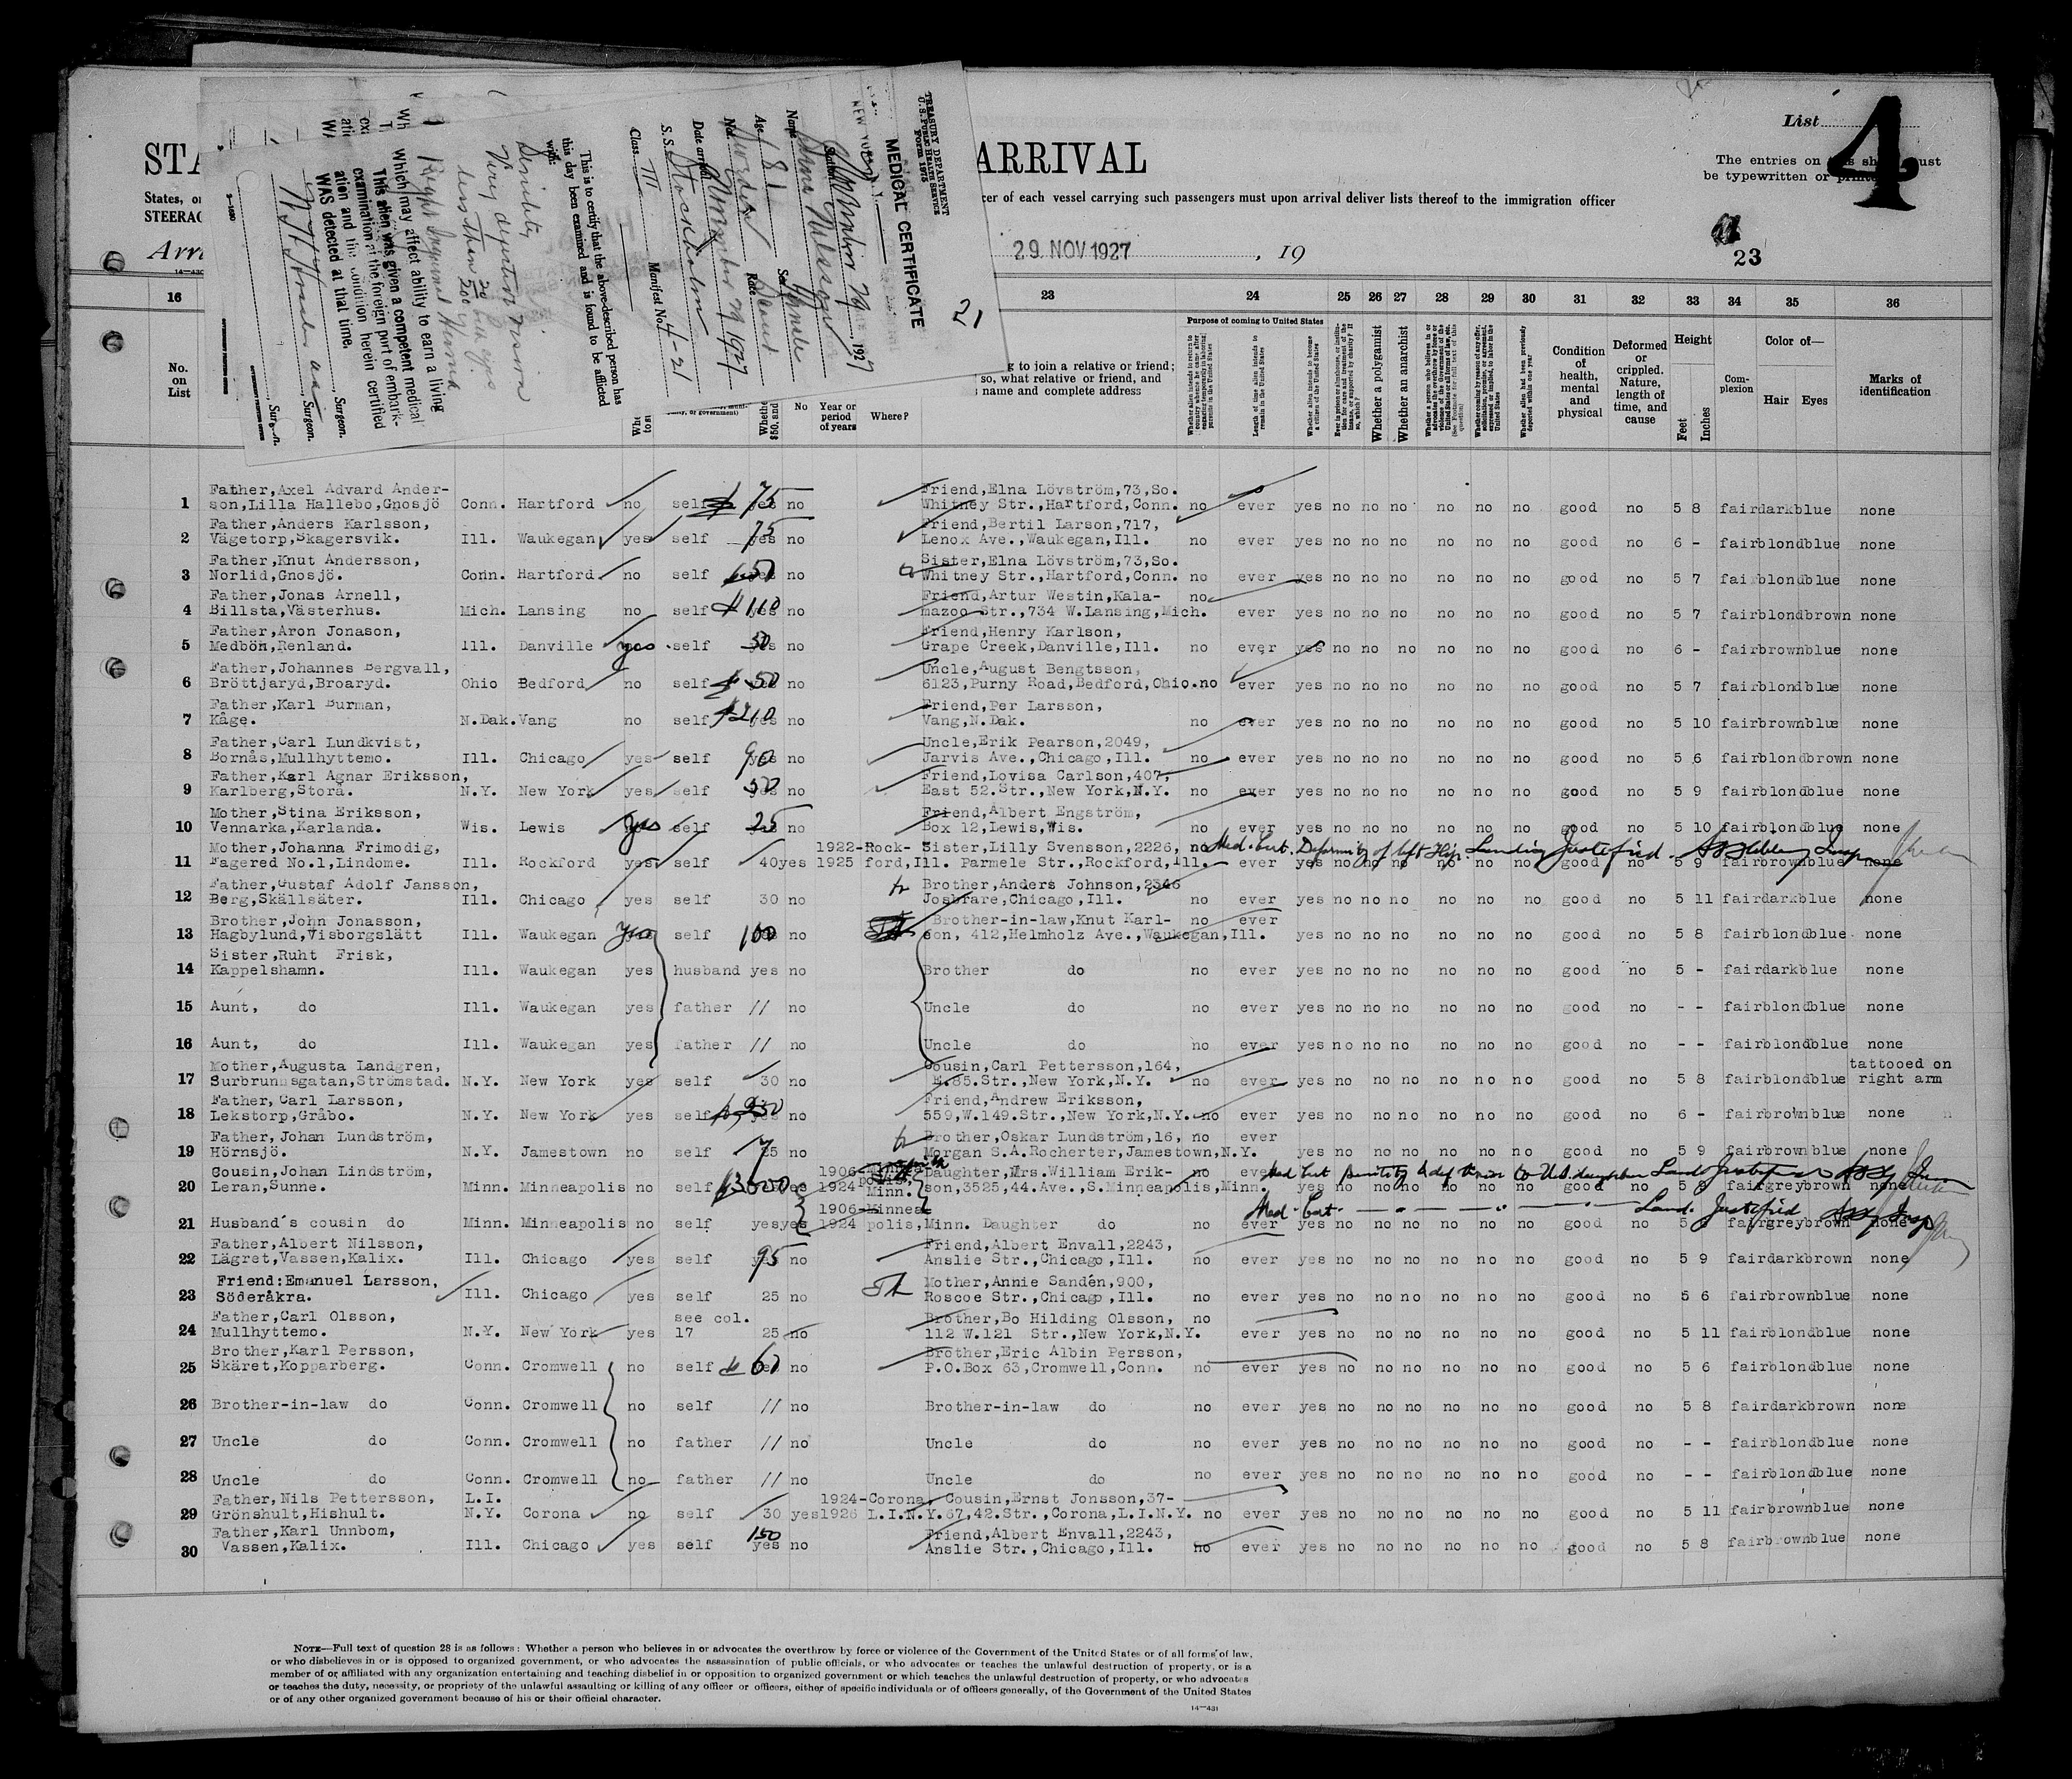 STA
ARRIVAL
List
4
The entries on this sheet must
be typewritten or printed
States, or
cer of each vessel carrying such passengers must upon arrival deliver lists thereof to the immigration officer
STEERAG
Arri
29 NOV 1927, 19
23
TREASURY DEPARTMENT
U.S. PUBLIC HEALTH SERVICE
Form 1975
MEDICAL CERTIFICATE
21
November 29 1927
Name
Nilsson
Age 81 Sex Female
Nat. Sweden Race Scand
Date arrived November 29 1927
S. S. Stockholm
Class III Manifest No. 4-21
This is to certify that the above-described person has
this day been examined and is found to be afflicted
with:
Senility
Very defective vision
less than 20/200 both eyes
Right Inguinal Hernia
Which may affect ability to earn a living
This alien was given a competent medical
examination at the foreign port of embark-
ation and the condition herein certified
WAS detected at that time.
Surgeon.
Surgeon.
16 23 24 25 26 27 28 29 30 31 32 33 34 35 36
No. on List
No
Year or period of years
Where?
g to join a relative or friend;
so, what relative or friend, and
name and complete address
Purpose of coming to United States
Whether a polygamist
Whether an anarchist
Condition of health, mental and physical
Deformed or crippled. Nature, length of time, and cause
Height
Feet
Inches
Complexion
Color of—
Hair
Eyes
Marks of identification
Father,Axel Advard Ander- Friend,Elna Lövström,73,So.
1 son,Lilla Hallebo,Gnosjö Conn. Hartford no self 75 yes no Whitney Str.,Hartford,Conn. no ever yes no no no no no no good no 5 8 fair dark blue none
Father,Anders Karlsson, Friend,Bertil Larson,717,
2 Vägetorp,Skagersvik. Ill. Waukegan yes self 75 yes no Lenox Ave.,Waukegan,Ill. no ever yes no no no no no no good no 6 - fair blond blue none
Father,Knut Andersson, Sister,Elna Lövström,73,So.
3 Norlid,Gnosjö. Conn. Hartford no self 50 yes no Whitney Str.,Hartford,Conn. no ever yes no no no no no no good no 5 7 fair blond blue none
Father,Jonas Arnell, Friend,Artur Westin,Kala- no
4 Billsta,Västerhus. Mich. Lansing no self 110 yes no mazoo Str.,734 W.Lansing,Mich. ever yes no no no no no no good no 5 7 fair blond brown none
Father,Aron Jonason, Friend,Henry Karlson,
5 Medbön,Renland. Ill. Danville yes self 50 yes no Grape Creek,Danville,Ill. no ever yes no no no no no no good no 6 - fair brown blue none
Father,Johannes Bergvall, Uncle,August Bengtsson,
6 Bröttjaryd,Broaryd. Ohio Bedford no self 50 yes no 6123,Purny Road,Bedford,Ohio. no ever yes no no no no no no good no 5 7 fair blond blue none
Father,Karl Burman, Friend,Per Larsson,
7 Kåge. N.Dak. Vang no self 210 no Vang,N.Dak. no ever yes no no no no no no good no 5 10 fair brown blue none
Father,Carl Lundkvist, Uncle,Erik Pearson,2049,
8 Bornås,Mullhyttemo. Ill. Chicago yes self 90 yes no Jarvis Ave.,Chicago,Ill. no ever yes no no no no no no good no 5 6 fair blond brown none
Father,Karl Agnar Eriksson, Friend,Lovisa Carlson,407,
9 Karlberg,Storå. N.Y. New York yes self 50 yes no East 52.Str.,New York,N.Y. no ever yes no no no no no no good no 5 9 fair blond blue none
Mother,Stina Eriksson, Friend,Albert Engström,
10 Vennarka,Karlanda. Wis. Lewis yes self 25 no Box 12,Lewis,Wis. no ever yes no no no no no no good no 5 10 fair blond blue none
Mother,Johanna Frimodig, 1922-Rock- Sister,Lilly Svensson,2226, no Med. Cert. Deformity of left Hip. Landing Justified.
11 Fagered No.1,Lindome. Ill. Rockford yes self 40 yes 1925 ford,Ill. Parmele Str.,Rockford,Ill. ever yes no no no no no no good no 5 9 fair brown blue none
Father,Gustaf Adolf Jansson, Brother,Anders Johnson,2346
12 Berg,Skällsäter. Ill. Chicago yes self 30 no Josbfare,Chicago,Ill. no ever yes no no no no no no good no 5 11 fair dark blue none
Brother,John Jonasson, Brother-in-law,Knut Karl- no ever
13 Hagbylund,Visborgslätt Ill. Waukegan yes self 100 no son, 412,Helmholz Ave.,Waukegan,Ill. yes no no no no no no good no 5 8 fair blond blue none
Sister,Ruht Frisk,
14 Kappelshamn. Ill. Waukegan yes husband yes no Brother do no ever yes no no no no no no good no 5 - fair dark blue none
15 Aunt, do Ill. Waukegan yes father // no Uncle do no ever yes no no no no no no good no - - fair blond blue none
16 Aunt, do Ill. Waukegan yes father // no Uncle do no ever yes no no no no no no good no - - fair blond blue none
Mother,Augusta Landgren, Cousin,Carl Pettersson,164, tattooed on
17 Surbrunnsgatan,Strömstad. N.Y. New York yes self 30 no E.85.Str.,New York,N.Y. no ever yes no no no no no no good no 5 8 fair blond blue right arm
Father,Carl Larsson, Friend,Andrew Eriksson,
18 Lekstorp,Gråbo. N.Y. New York yes self yes no 559,W.149.Str.,New York,N.Y. no ever yes no no no no no no good no 6 - fair brown blue none
Father,Johan Lundström, Brother,Oskar Lundström,16, no ever
19 Hörnsjö. N.Y. Jamestown no self no Morgan S.A.Rocherter,Jamestown,N.Y. yes no no no no no no good no 5 9 fair brown blue none
Cousin,Johan Lindström, 1906-Minnea- Daughter,Mrs.William Erik- no ever Med Cert Senility
20 Leran,Sunne. Minn. Minneapolis no self yes 1924 polis, Minn. son,3525,44.Ave.,S.Minneapolis,Minn. yes no no no no no no good no 5 9 fair grey brown none
1906-Minnea Med. Cert. Land. Justified
21 Husband's cousin do Minn. Minneapolis no self yes yes 1924 polis,Minn. Daughter do good no fair grey brown none
Father,Albert Nilsson, Friend,Albert Envall,2243,
22 Lägret,Vassen,Kalix. Ill. Chicago yes self 95 no Anslie Str.,Chicago,Ill. no ever yes no no no no no no good no 5 9 fair dark brown none
Friend:Emanuel Larsson, Mother,Annie Sandén,900,
23 Söderåkra. Ill. Chicago yes self 25 no Roscoe Str.,Chicago,Ill. no ever yes no no no no no no good no 5 6 fair brown blue none
Father,Carl Olsson, see col. Brother,Bo Hilding Olsson, no
24 Mullhyttemo. N.Y. New York yes 17 25 no 112 W.121 Str.,New York,N.Y. ever yes no no no no no no good no 5 11 fair blond blue none
Brother,Karl Persson, Brother,Eric Albin Persson,
25 Skäret,Kopparberg. Conn. Cromwell no self no P.O.Box 63,Cromwell,Conn. no ever yes no no no no no no good no 5 6 fair blond blue none
26 Brother-in-law do Conn. Cromwell no self // no Brother-in-law do no ever yes no no no no no no good no 5 8 fair dark brown none
27 Uncle do Conn. Cromwell no father // no Uncle do no ever yes no no no no no no good no - - fair blond blue none
28 Uncle do Conn. Cromwell no father // no Uncle do no ever yes no no no no no no good no - - fair blond blue none
Father,Nils Pettersson, L.I. 1924-Corona, Cousin,Ernst Jonsson,37-
29 Grönshult,Hishult. N.Y. Corona no self 30 yes 1926 L.I.N.Y. 67,42.Str.,Corona,L.I.N.Y. no ever yes no no no no no no good no 5 11 fair brown blue none
Father,Karl Unnbom, 150 Friend,Albert Envall,2243,
30 Vassen,Kalix. Ill. Chicago yes self yes no Anslie Str.,Chicago,Ill. no ever yes no no no no no no good no 5 8 fair brown blue none
NOTE—Full text of question 28 is as follows: Whether a person who believes in or advocates the overthrow by force or violence of the Government of the United States or of all forms of law,
or who disbelieves in or is opposed to organized government, or who advocates the assassination of public officials, or who advocates or teaches the unlawful destruction of property, or is a
member of or affiliated with any organization entertaining and teaching disbelief in or opposition to organized government or which teaches the unlawful destruction of property, or who advocates
or teaches the duty, necessity, or propriety of the unlawful assaulting or killing of any officer or officers, either of specific individuals or of officers generally, of the Government of the United States
or of any other organized government because of his or their official character.
14—431